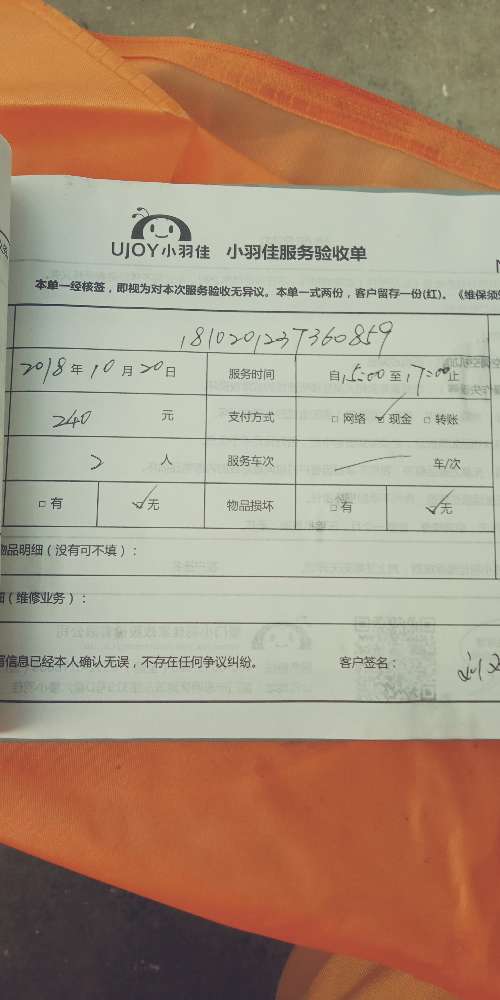 UJOY小羽佳 小羽佳服务验收单
本单一经核签，即视为对本次服务验收无异议。本单一式两份，客户留存一份(红)。《维保须知
2018年10月20日 服务时间 自15:00至17:00止
240 元 支付方式 □网络 ☑现金 □转账
2 人 服务车次 车/次
□有 ☑无 物品损坏 □有 ☑无
物品明细（没有可不填）：
（维修业务）：
信息已经本人确认无误，不存在任何争议纠纷。 客户签名：